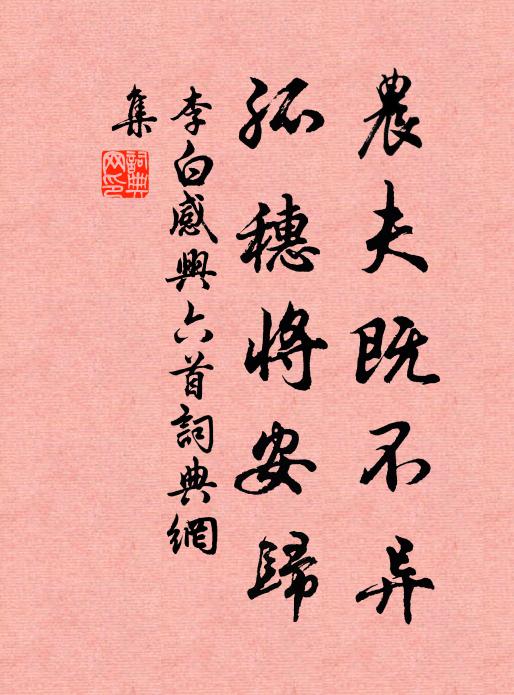 農夫既不异
孤穗將安歸
李白感興六首詞典網
集
詞典网印